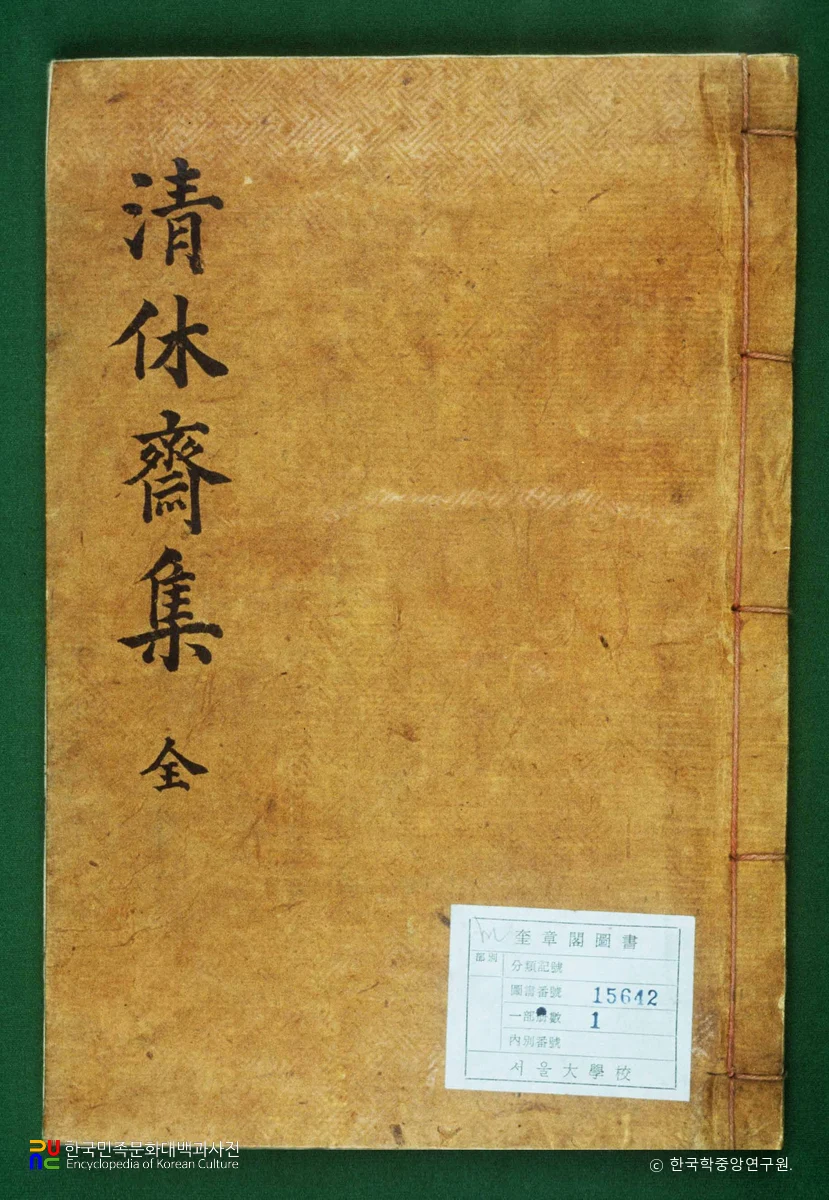 清休齋集 全
奎章閣圖書
部別
分類記號
圖書番號 15642
一部冊數 1
內別番號
서울大學校
한국민족문화대백과사전
Encyclopedia of Korean Culture
© 한국학중앙연구원.